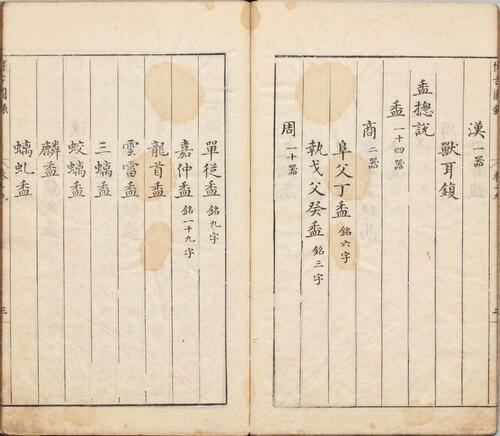 漢一器
獸耳鍑
盉揔說
盉一十四器
商二器
阜父丁盉銘六字
執戈父癸盉銘三字
周一十器
單從盉銘九字
嘉仲盉銘一十九字
龍首盉
雲雷盉
三螭盉
蛟螭盉
麟盉
螭虬盉
三